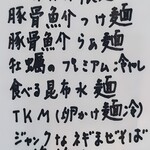 麺
豚骨魚介つけ麺
豚骨魚介らぁ麺
牡蠣のプレミアム冷やし
食べる昆布水麺
TKM(卵かけ麺冷)
ジャンクなネギまぜそば